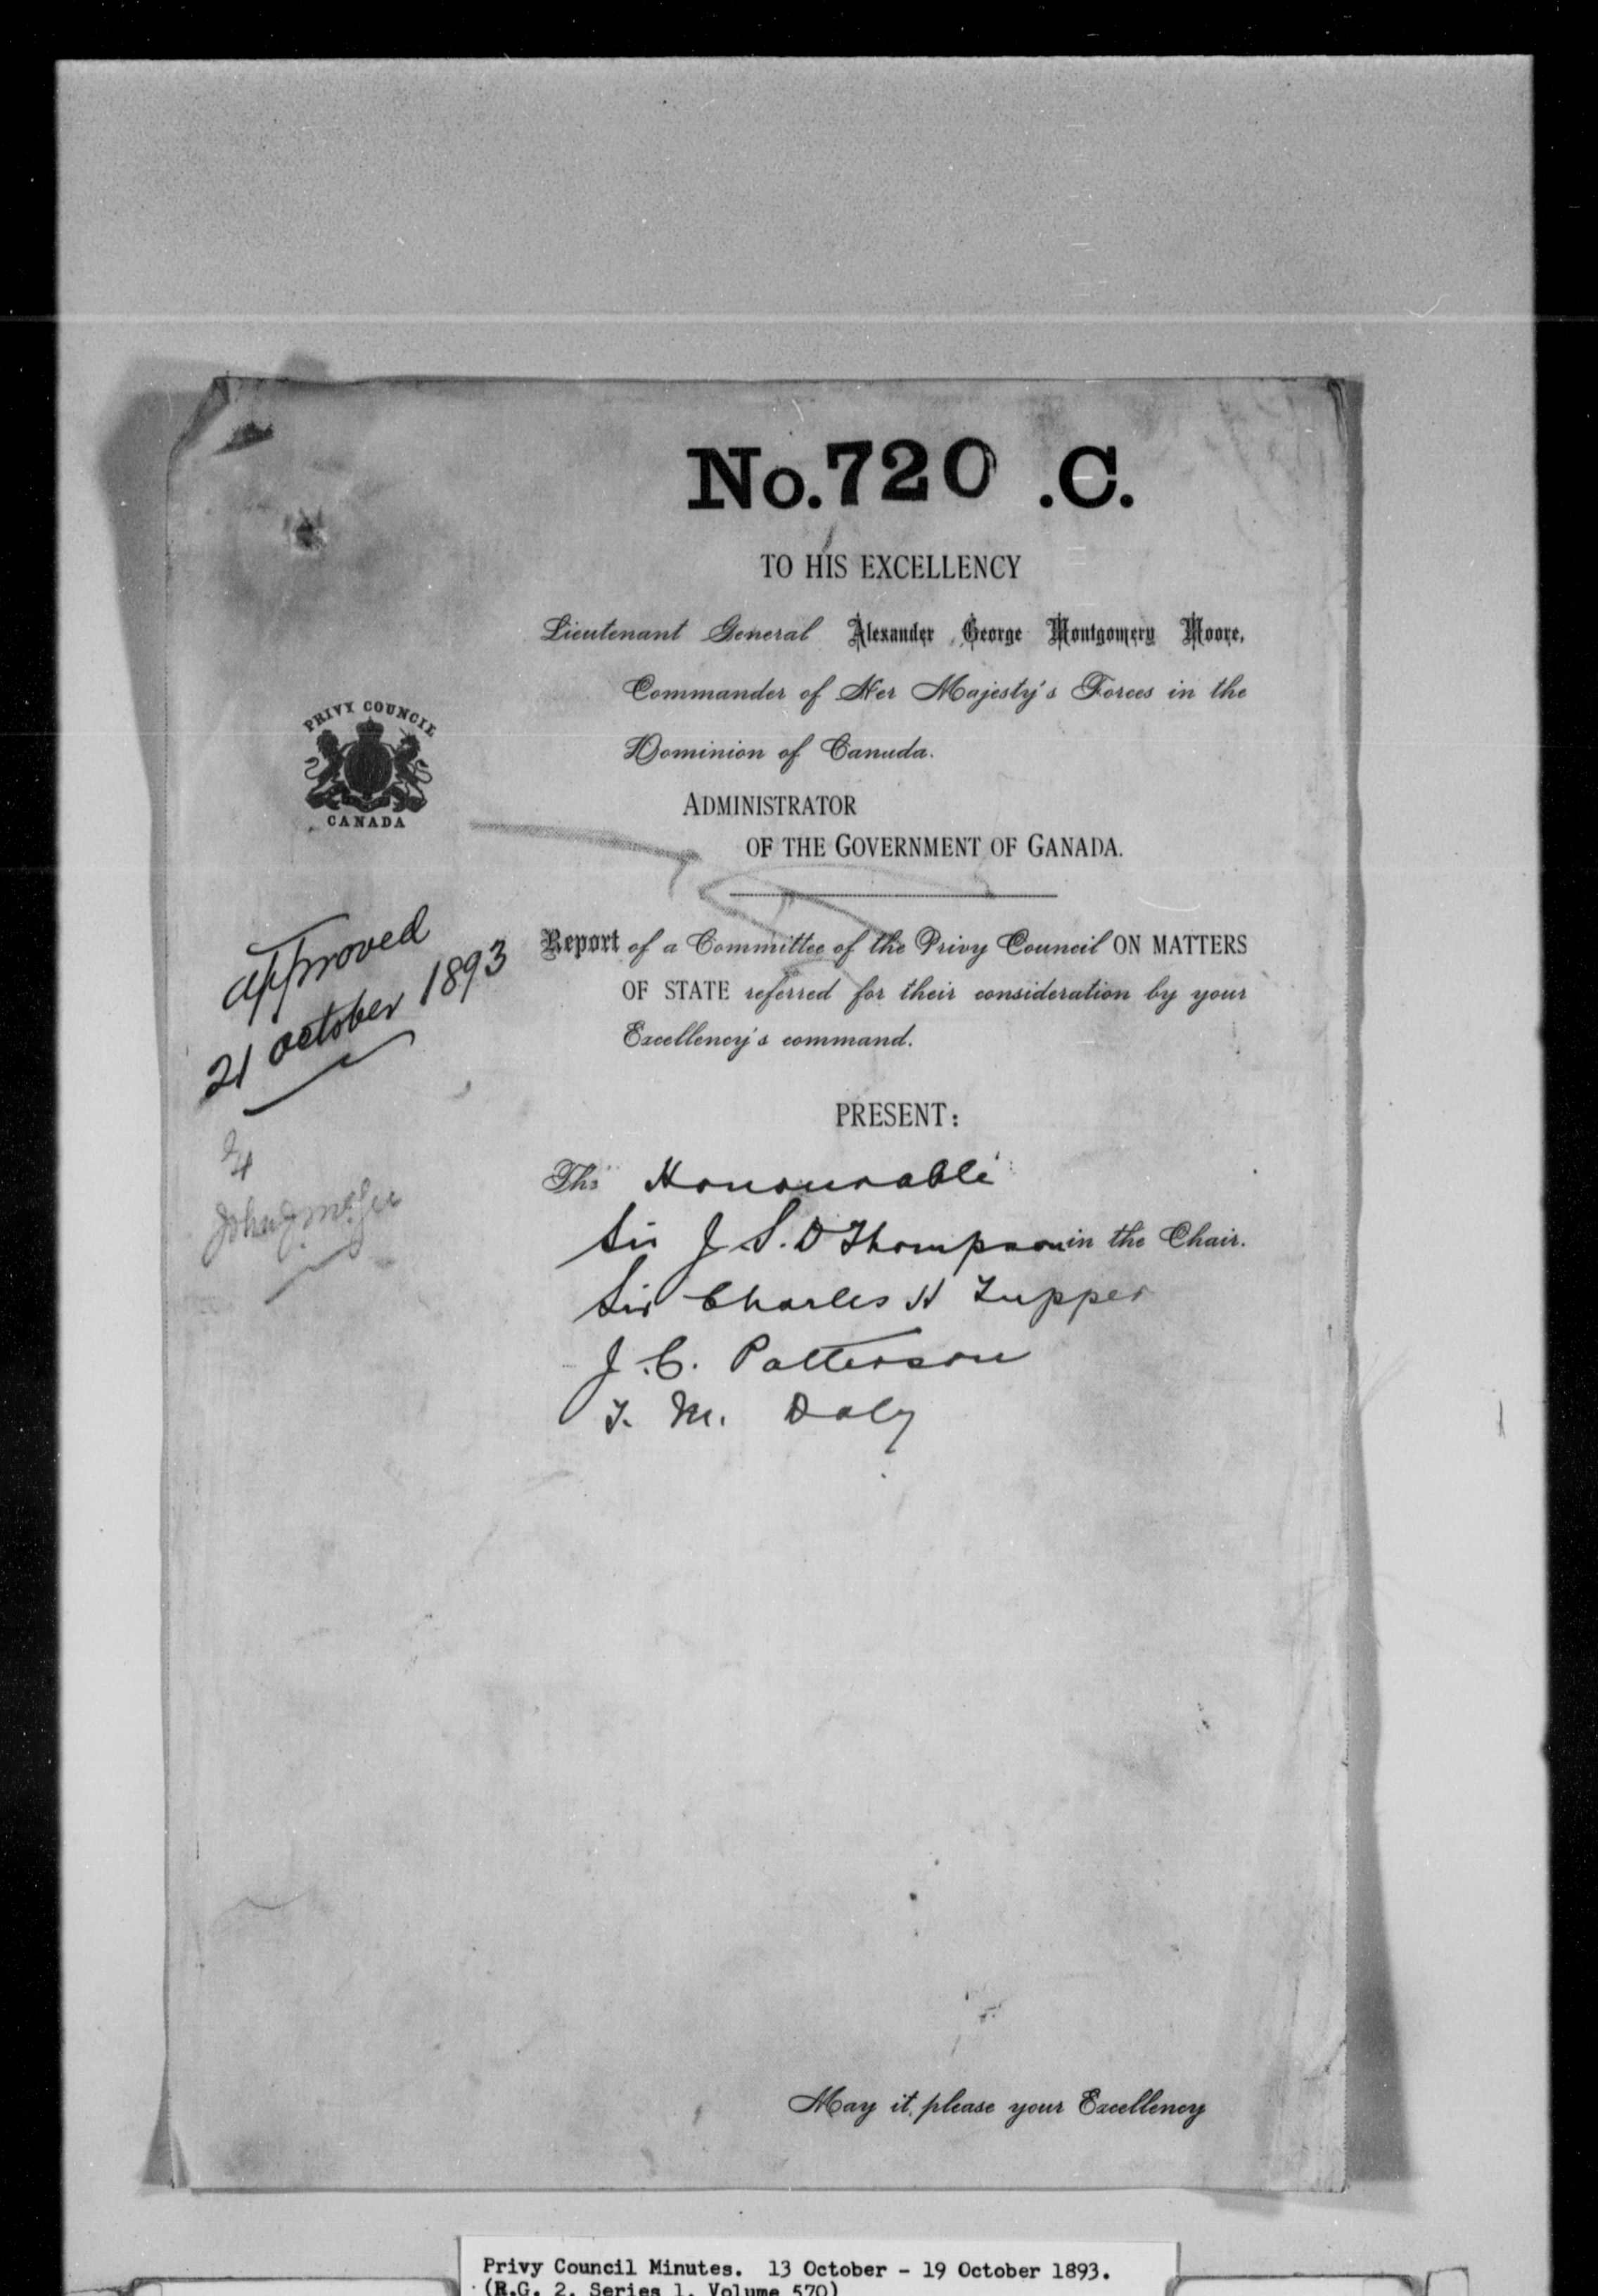 No. 720 .C.
TO HIS EXCELLENCY
Lieutenant General Alexander George Montgomery Moore,
Commander of Her Majesty's Forces in the
Dominion of Canada.
PRIVY COUNCIL
CANADA
ADMINISTRATOR
OF THE GOVERNMENT OF CANADA.
approved
21 october 1893
Report of a Committee of the Privy Council ON MATTERS
OF STATE referred for their consideration by your
Excellency's command.
PRESENT:
John J McGee
The Honourable
Sir J. S. D Thompson in the Chair.
Sir Charles H Tupper
J. C. Patterson
T. M. Daly
May it please your Excellency
Privy Council Minutes. 13 October - 19 October 1893.
(R.G. 2, Series 1, Volume 570)